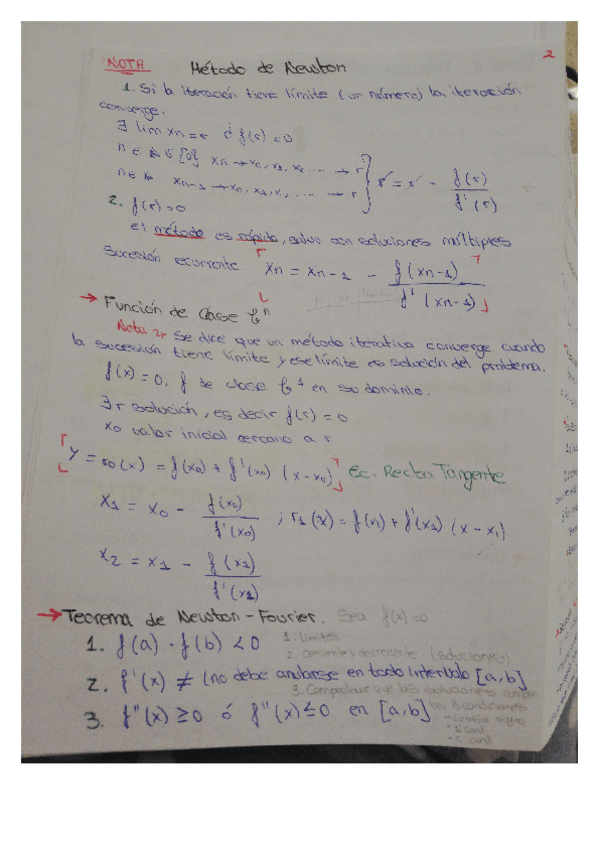 NOTA Método de Newton 2
1. Si la iteración tiene límite (un número) la iteración
converge.
∃ lim xn = r ¿ f(r) = 0
xn → x0, x1, x2, ... → r
xn-1 → x0, x1, x2, ... → r } r = r - f(r) / f'(r)
2. f(r) = 0
el método es rápido, salvo con soluciones múltiples
sucesión recurrente xn = xn-1 - f(xn-1) / f'(xn-1)
→ Función de clase ℓⁿ
Nota 2: Se dice que un método iterativo converge cuando
la sucesión tiene límite y ese límite es solución del problema.
f(x) = 0, f de clase ℓ¹ en su dominio.
∃ r solución, es decir f(r) = 0
x0 valor inicial cercano a r
y = r0(x) = f(x0) + f'(x0) (x-x0) Ec. Recta Tangente
x1 = x0 - f(x0) / f'(x0) ; r1(x) = f(x1) + f'(x1) (x - x1)
x2 = x1 - f(x1) / f'(x1)
→ Teorema de Newton-Fourier. Sea f(x)=0
1. f(a) · f(b) < 0
1. Límites
2. Creciente y decreciente (soluciones)
2. f'(x) ≠ (no debe anularse en todo intervalo [a,b]
3. Comprobar que las soluciones cumplen
las 3 condiciones
3. f''(x) ≥ 0 ó f''(x) ≤ 0 en [a,b]
- Cambio signo
- 1 cond